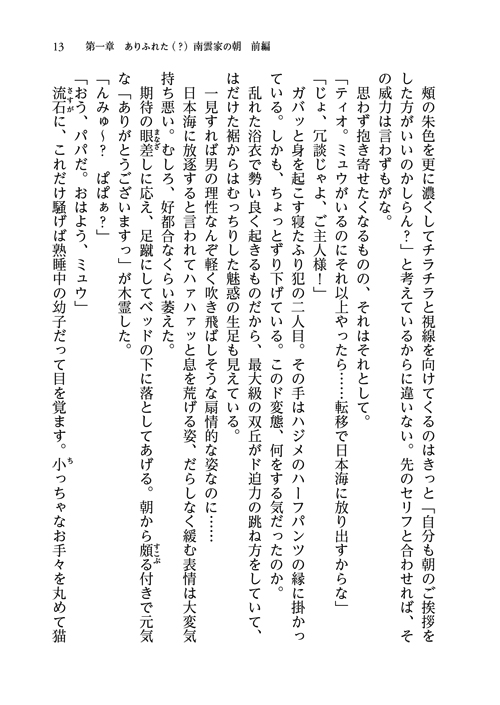 13　第一章　ありふれた（？）南雲家の朝　前編
頬の朱色を更に濃くしてチラチラと視線を向けてくるのはきっと「自分も朝のご挨拶を
した方がいいのかしらん？」と考えているからに違いない。先のセリフと合わせれば、そ
の威力は言わずもがな。
　思わず抱き寄せたくなるものの、それはそれとして。
「ティオ。ミュウがいるのにそれ以上やったら……転移で日本海に放り出すからな」
「じょ、冗談じゃよ、ご主人様！」
　ガバッと身を起こす寝たふり犯の二人目。その手はハジメのハーフパンツの縁に掛かっ
ている。しかも、ちょっとずり下げている。このド変態、何をする気だったのか。
　乱れた浴衣で勢い良く起きるものだから、最大級の双丘がド迫力の跳ね方をしていて、
はだけた裾からはむっちりした魅惑の生足も見えている。
　一見すれば男の理性なんぞ軽く吹き飛ばしそうな扇情的な姿なのに……
　日本海に放逐すると言われてハァハァッと息を荒げる姿、だらしなく緩む表情は大変気
持ち悪い。むしろ、好都合なくらい萎えた。
　期待の眼差しに応え、足蹴にしてベッドの下に落としてあげる。朝から頗る付きで元気
な「ありがとうございますっ」が木霊した。
「んみゅ～？　ぱぱぁ？」
「おう、パパだ。おはよう、ミュウ」
　流石に、これだけ騒げば熟睡中の幼子だって目を覚ます。小っちゃなお手々を丸めて猫